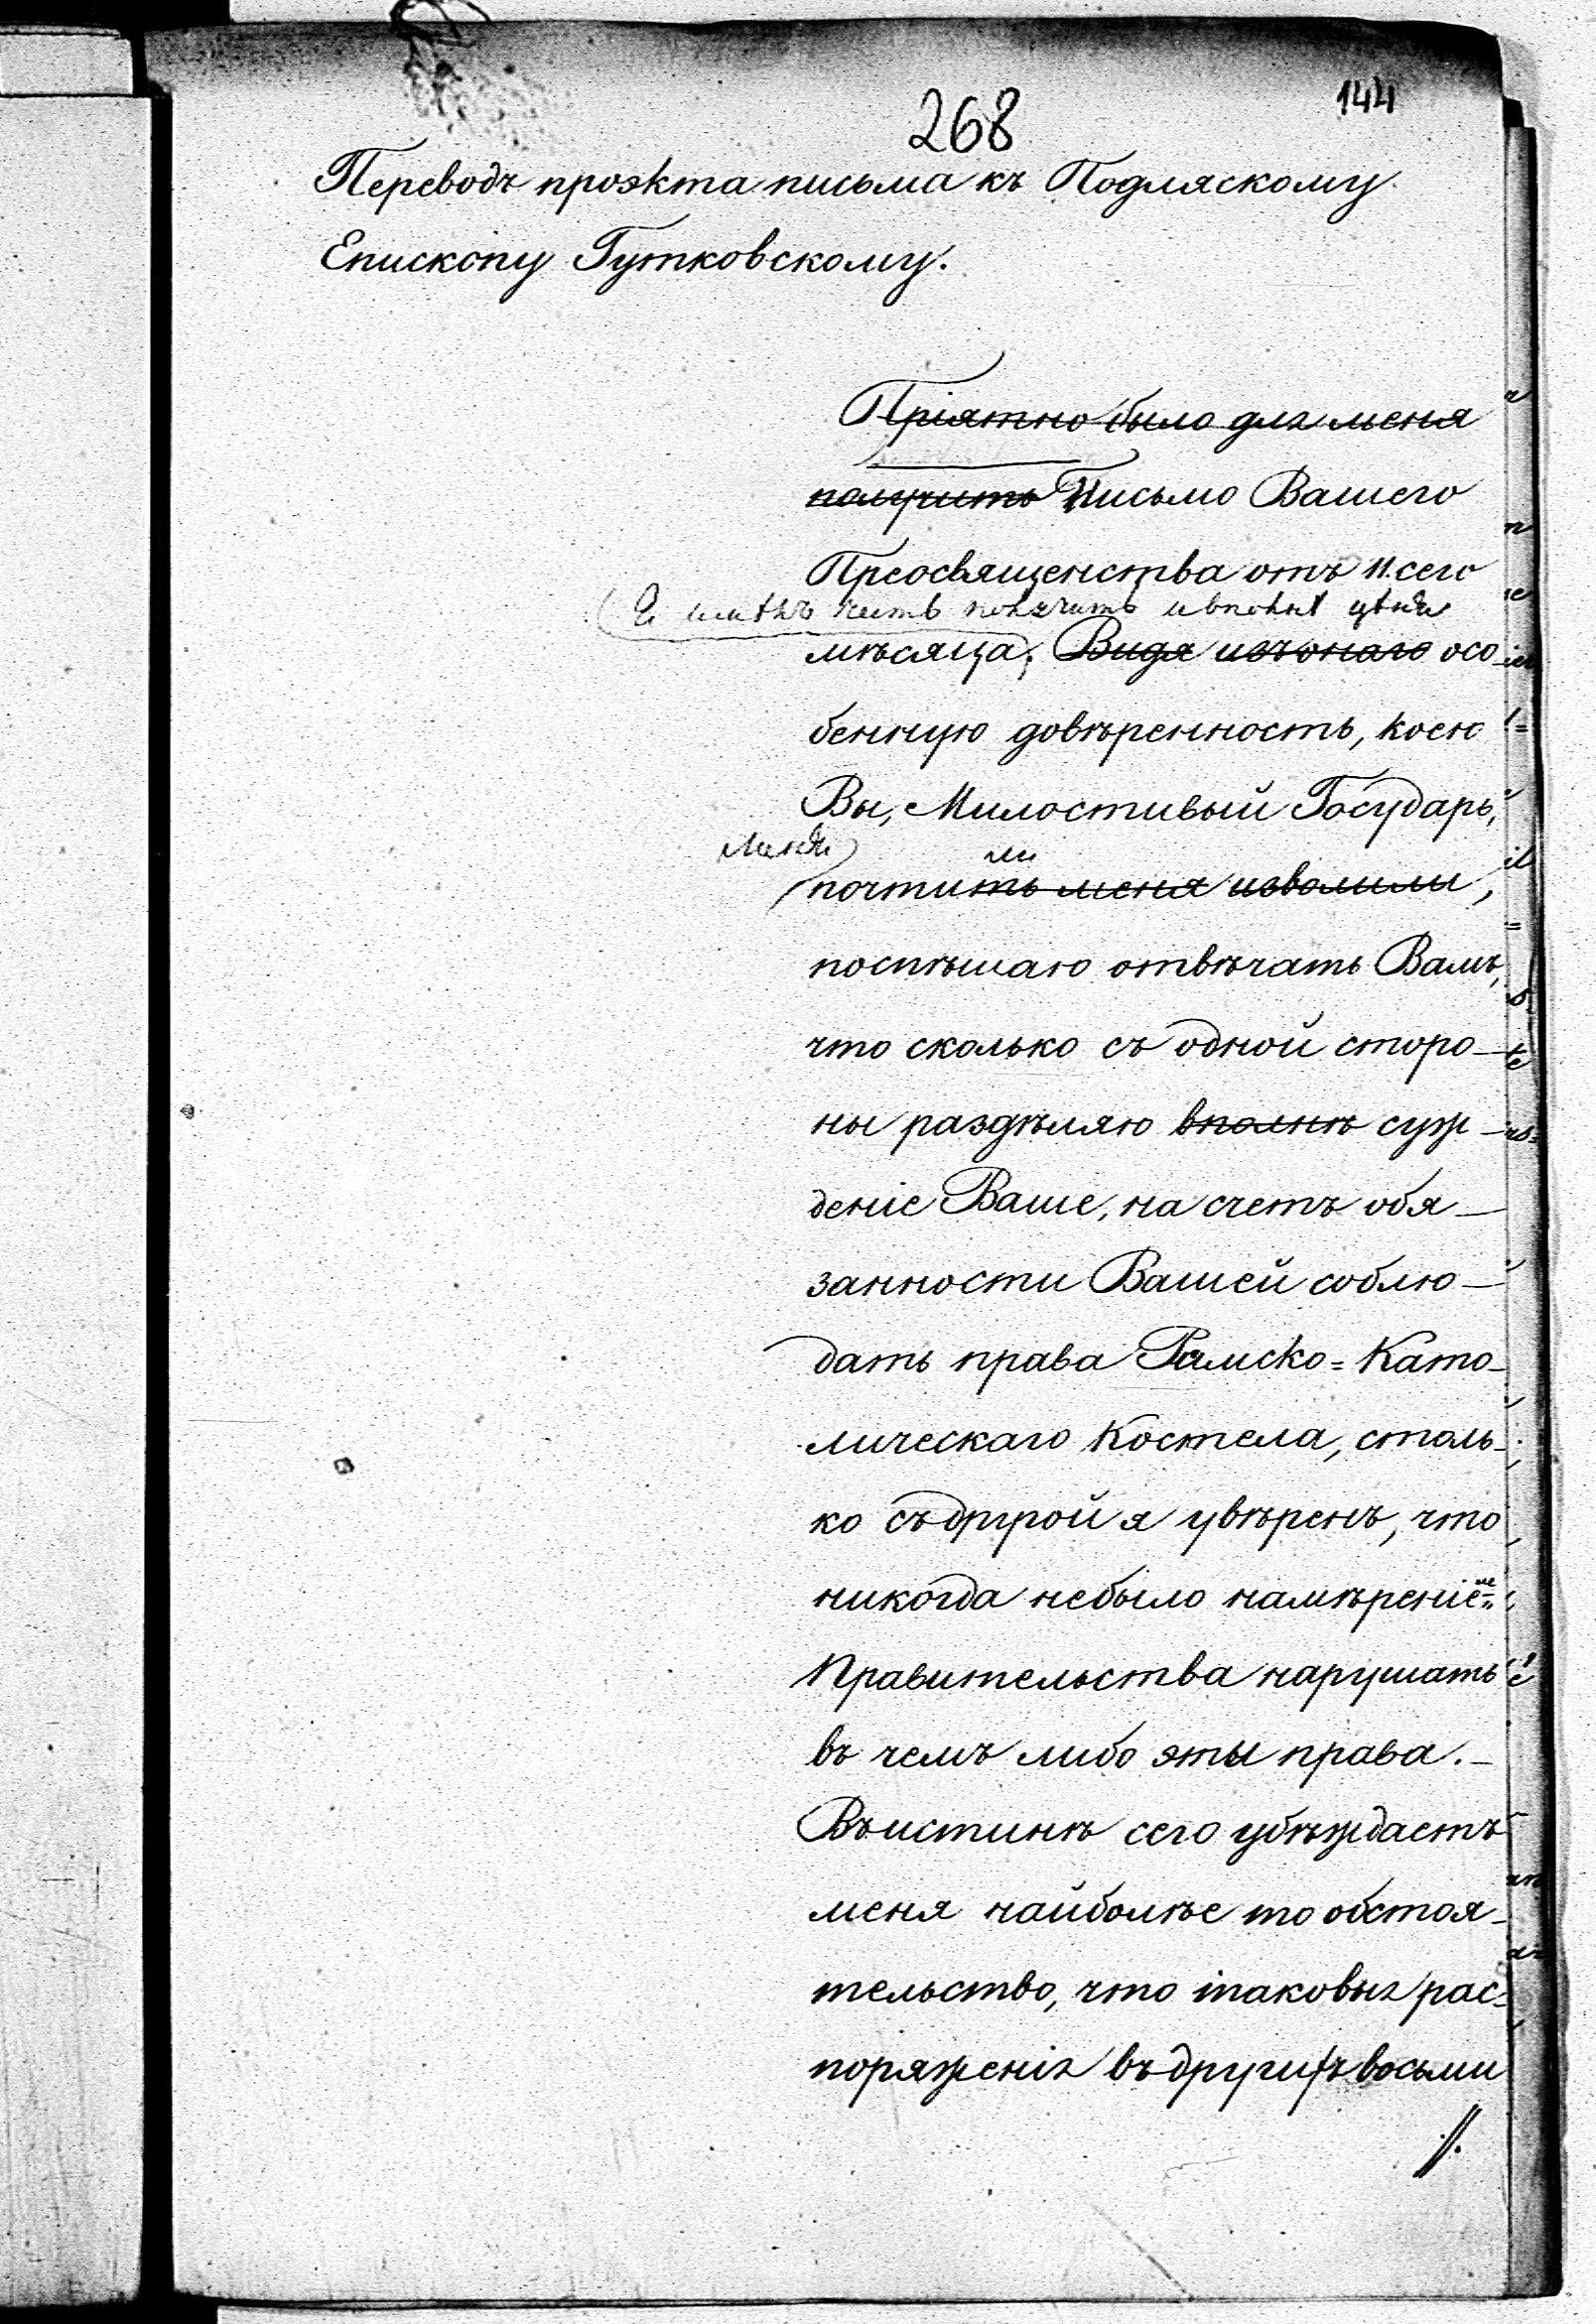 268
144
Переводъ проэкта письма къ Подляскому
Епископу Гутковскому.
Пріятно было для меня
получить Письмо Вашего
Преосвященства отъ 11. сего
Я имѣлъ честь получить и вполнѣ цѣня
мѣсяца; Видя изъ онаго осо
бенную довѣренность, коею
Вы, Милостивый Государь,
меня ли
почтить меня изволили,
поспѣшаю отвѣчать Вамъ,
что сколько съ одной сторо—
ны раздѣляю вполнѣ суж—
деніе Ваше, на счетъ обя—
занности Вашей соблю—
дать права Римско=Като—
лическаго Костела, столь—
ко съ другой я увѣренъ, что
никогда небыло намѣреніе
Правительства нарушать
въ чемъ либо эты права.—
Въ истинѣ сего убѣждаетъ
меня найболѣе то обстоя—
тельство, что таковыя рас—
поряженія въ другихъ восьми
//.